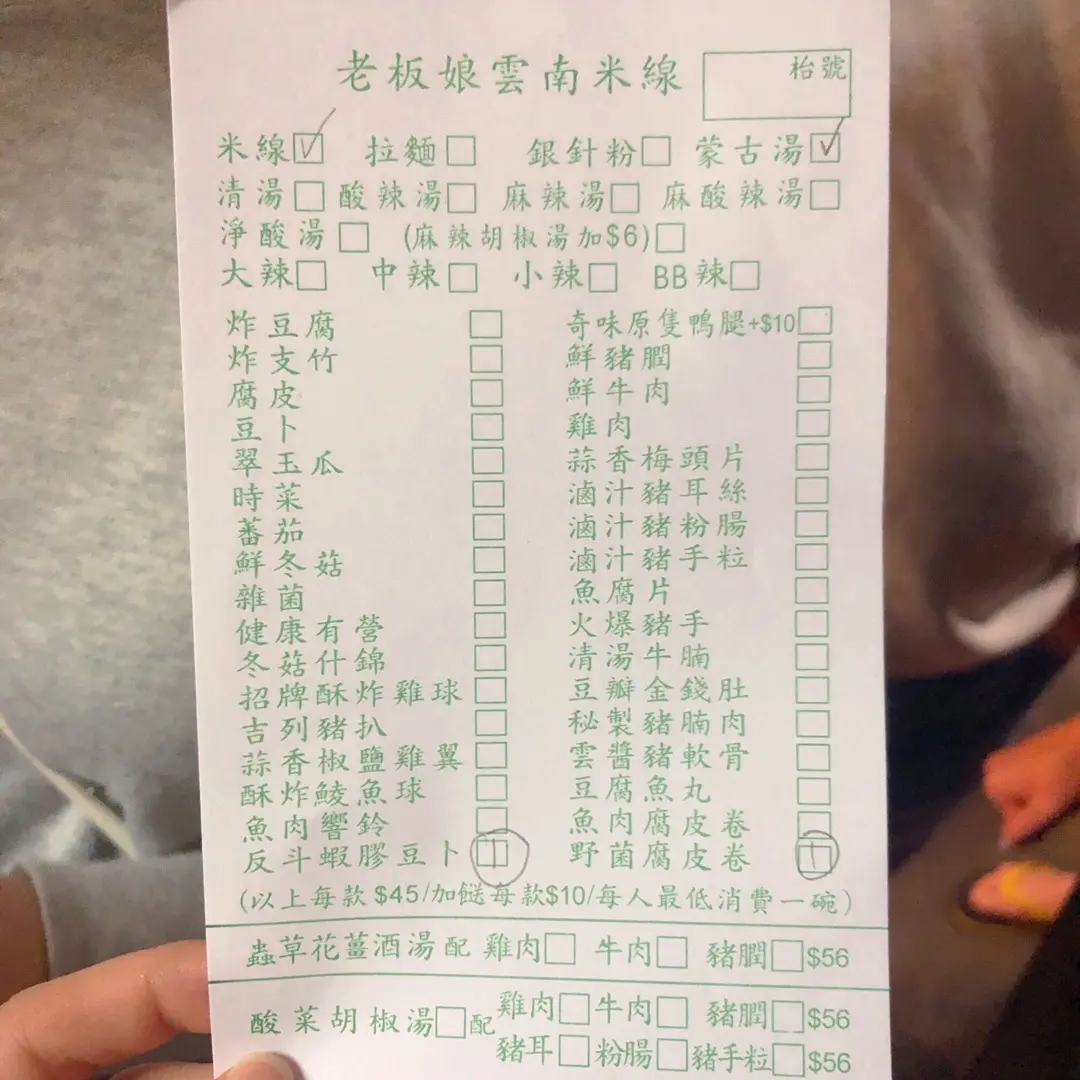 老板娘雲南米線
枱號
米線☑ 拉麵☐ 銀針粉☐ 蒙古湯☑
清湯☐ 酸辣湯☐ 麻辣湯☐ 麻酸辣湯☐
淨酸湯☐ (麻辣胡椒湯加$6)☐
大辣☐ 中辣☐ 小辣☐ BB辣☐
炸豆腐☐ 奇味原隻鴨腿+$10☐
炸支竹☐ 鮮豬膶☐
腐皮☐ 鮮牛肉☐
豆卜☐ 雞肉☐
翠玉瓜☐ 蒜香梅頭片☐
時菜☐ 滷汁豬耳絲☐
蕃茄☐ 滷汁豬粉腸☐
鮮冬菇☐ 滷汁豬手粒☐
雜菌☐ 魚腐片☐
健康有營☐ 火爆豬手☐
冬菇什錦☐ 清湯牛腩☐
招牌酥炸雞球☐ 豆瓣金錢肚☐
吉列豬扒☐ 秘製豬腩肉☐
蒜香椒鹽雞翼☐ 雲醬豬軟骨☐
酥炸鯪魚球☐ 豆腐魚丸☐
魚肉響鈴☐ 魚肉腐皮卷☐
反斗蝦膠豆卜 1 野菌腐皮卷 1
(以上每款$45/加餸每款$10/每人最低消費一碗)
蟲草花薑酒湯配 雞肉☐ 牛肉☐ 豬膶☐$56
酸菜胡椒湯☐配 雞肉☐ 牛肉☐ 豬膶☐$56
豬耳☐ 粉腸☐ 豬手粒☐$56